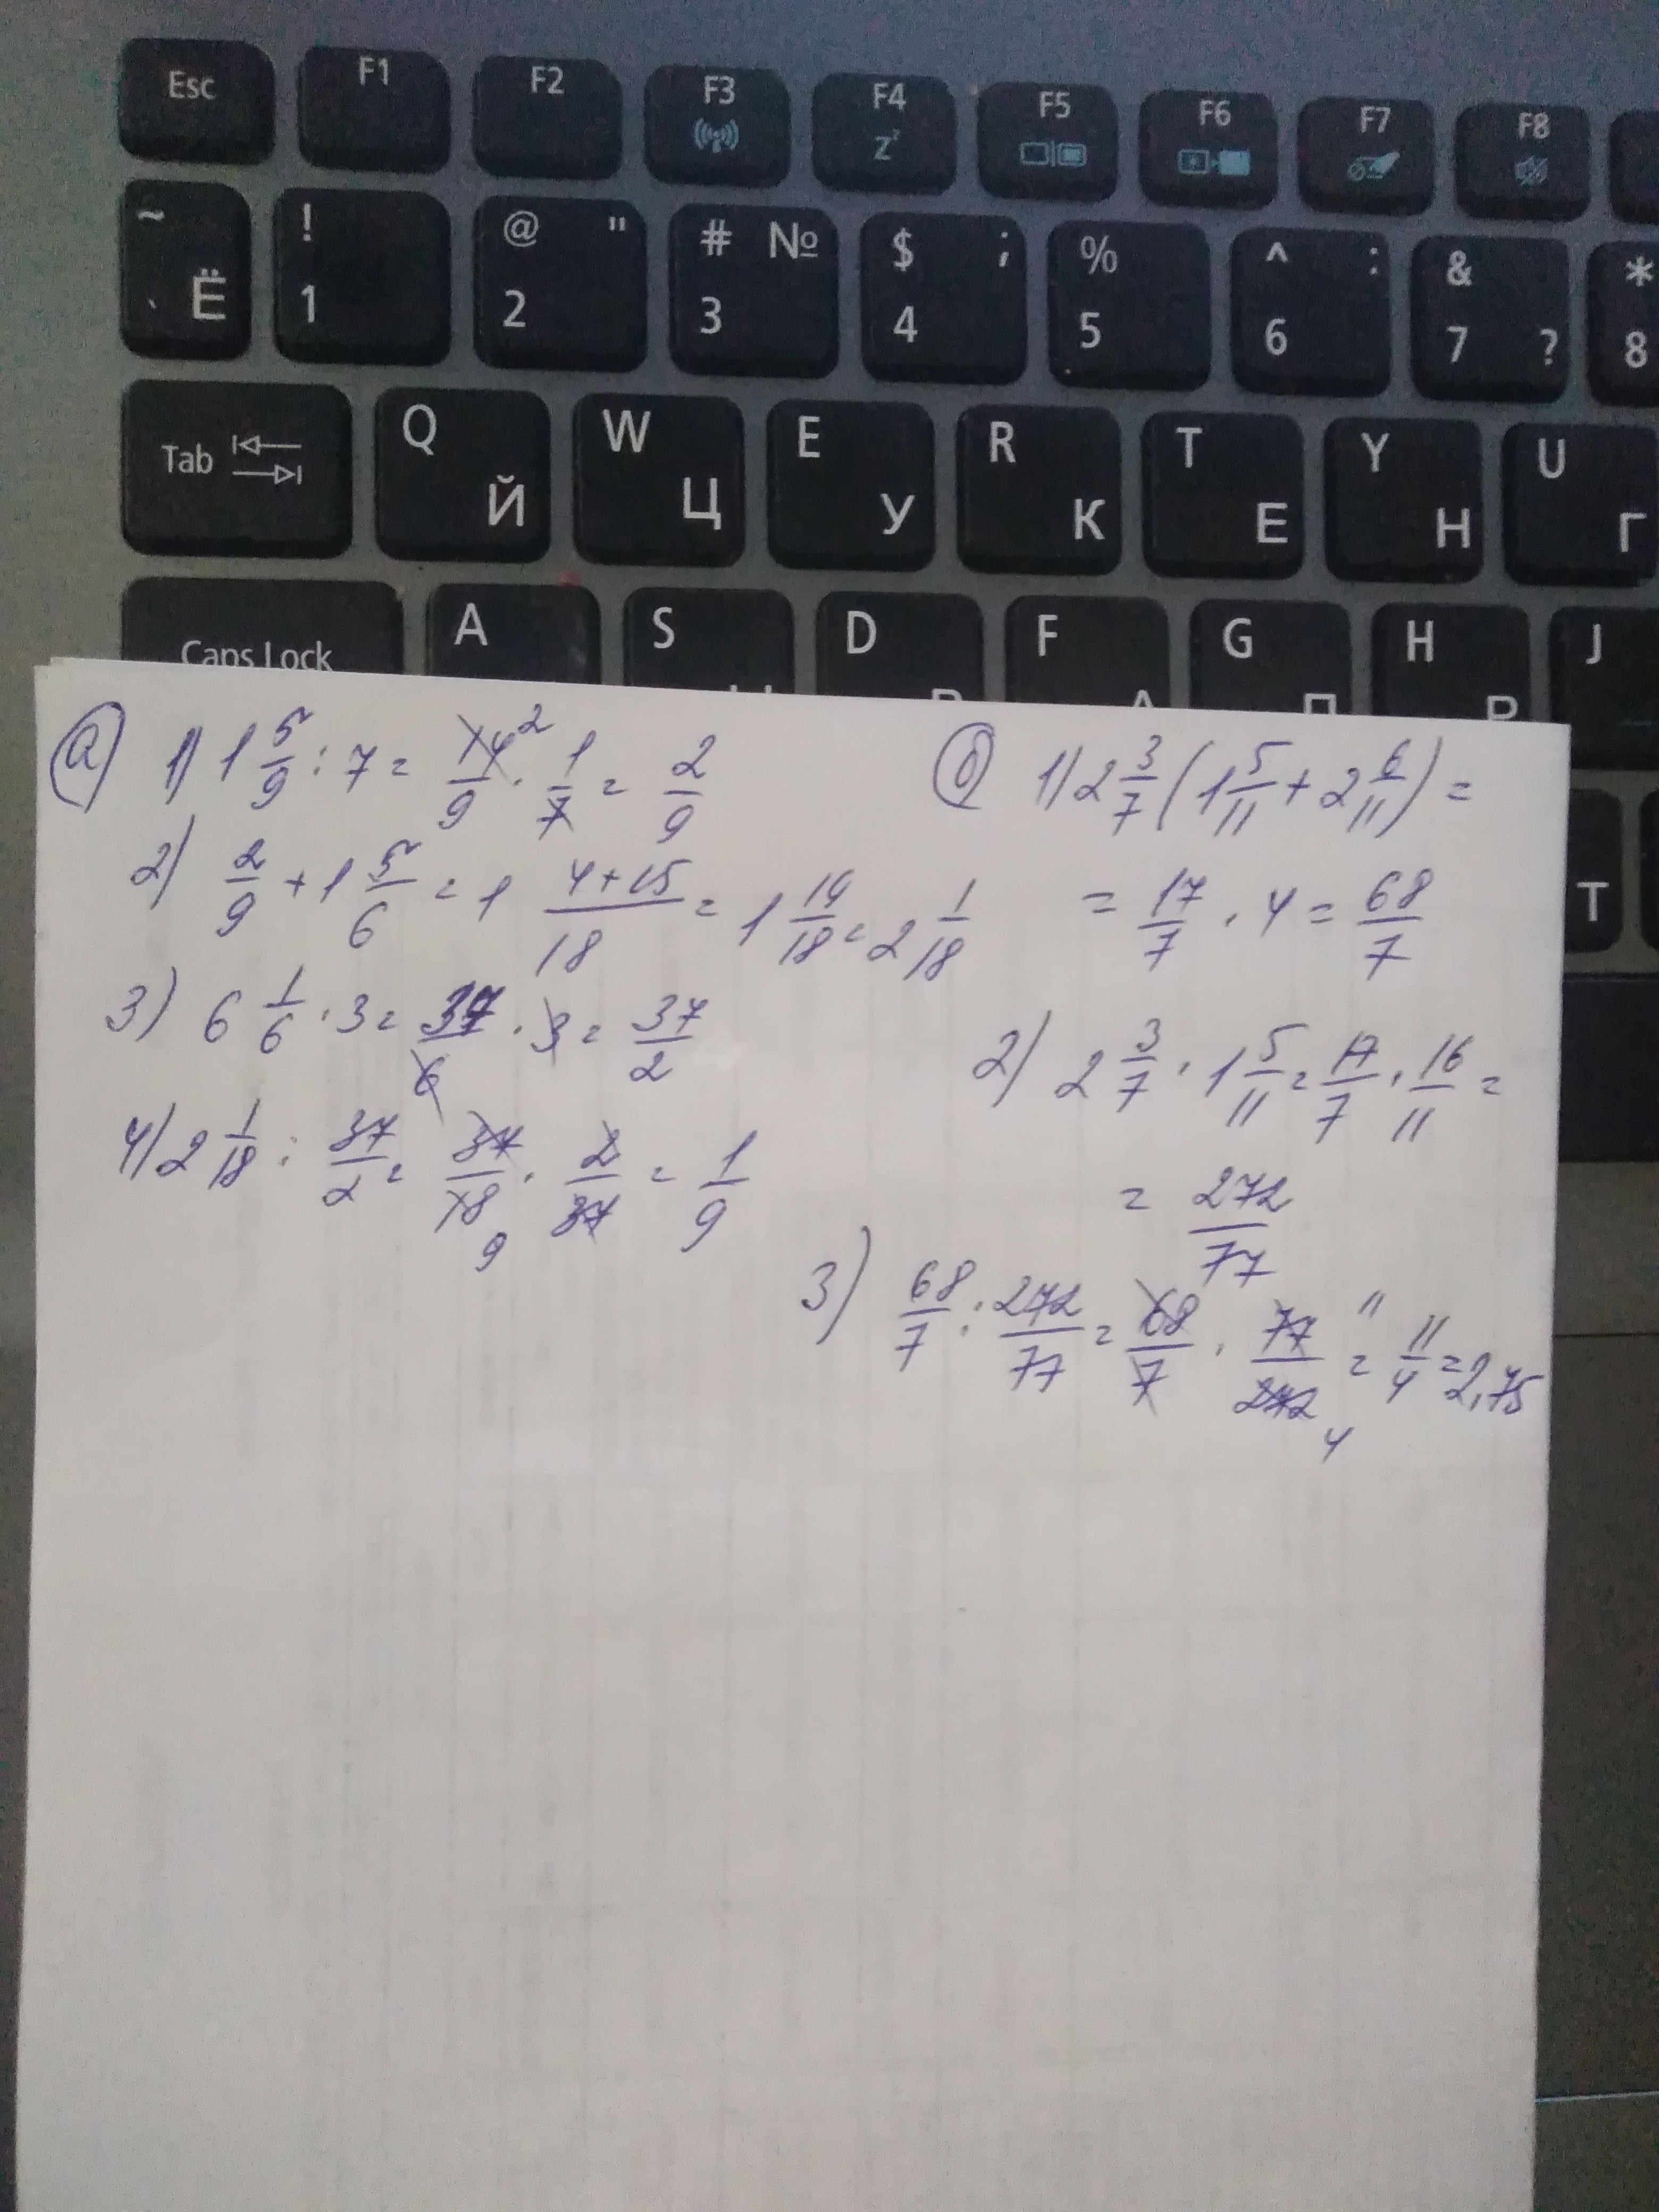 Esc F1 F2 F3 F4 Zz F5 F6 F7 F8
~ ` Ё ! 1 @ " 2 # № 3 $ ; 4 % 5 ^ : 6 & 7 ? * 8
Tab Q Й W Ц E У R К T Е Y Н U Г
Caps Lock A S D F G H J
T
а) 1) 1 5/9 : 7 = 14/9 2 · 1/7 = 2/9
2) 2/9 + 1 5/6 = 1 (4+15)/18 = 1 19/18 = 2 1/18
3) 6 1/6 · 3 = 37/6 · 3 = 37/2
4) 2 1/18 : 37/2 = 37/18 9 · 2/37 = 1/9
б) 1) 2 3/7 (1 5/11 + 2 6/11) =
= 17/7 · 4 = 68/7
2) 2 3/7 · 1 5/11 = 17/7 · 16/11 =
= 272/77
3) 68/7 : 272/77 = 68/7 · 77 11/272 4 = 11/4 = 2,75